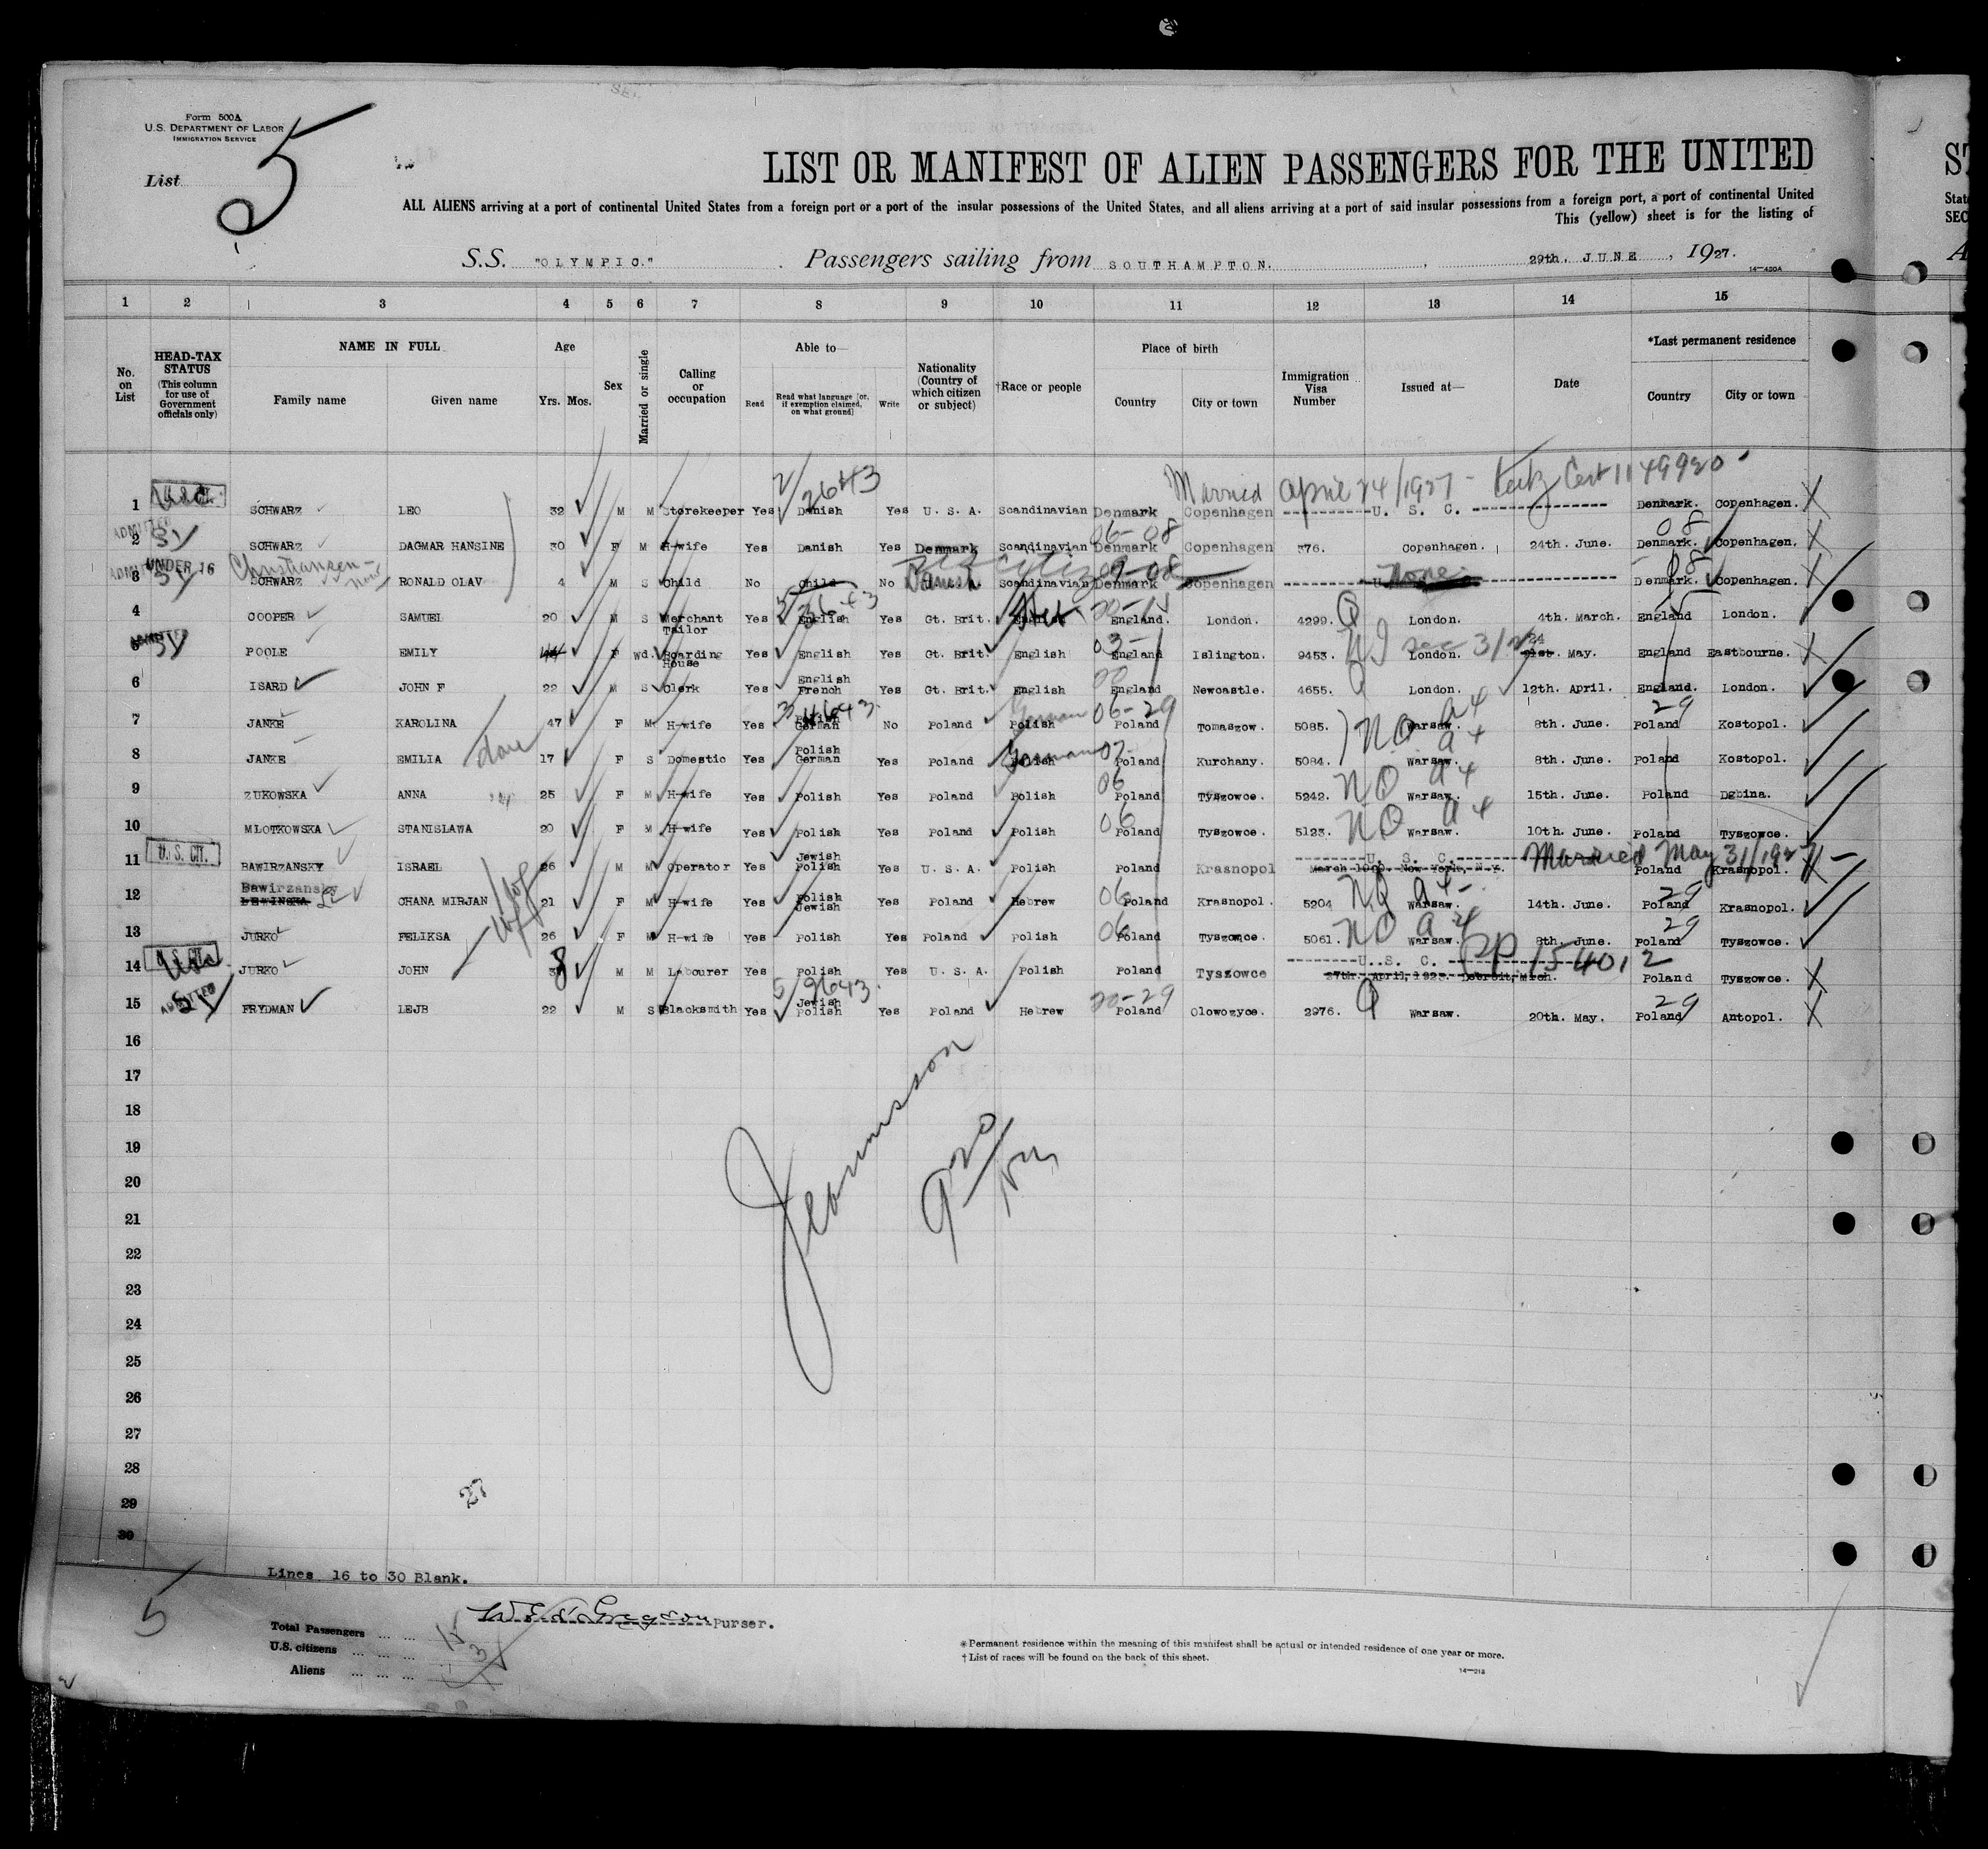 Form 500A
U.S. DEPARTMENT OF LABOR
IMMIGRATION SERVICE
List 5
LIST OR MANIFEST OF ALIEN PASSENGERS FOR THE UNITED
ALL ALIENS arriving at a port of continental United States from a foreign port or a port of the insular possessions of the United States, and all aliens arriving at a port of said insular possessions from a foreign port, a port of continental United
This (yellow) sheet is for the listing of
S.S. "OLYMPIC." Passengers sailing from SOUTHAMPTON. 29th. JUNE, 1927.
14-420A
1 2 3 4 5 6 7 8 9 10 11 12 13 14 15
No. on List
HEAD-TAX STATUS (This column for use of Government officials only)
NAME IN FULL Family name Given name
Age Yrs. Mos.
Sex
Married or single
Calling or occupation
Able to— Read Read what language [or, if exemption claimed, on what ground] Write
Nationality (Country of which citizen or subject)
†Race or people
Place of birth Country City or town
Immigration Visa Number
Issued at—
Date
*Last permanent residence Country City or town
Married April 24/1927 - Cert 1149920
1 SCHWARZ LEO 32 M M Storekeeper Yes Danish Yes U. S. A. Scandinavian Denmark Copenhagen ----------U. S. C.--------------- Denmark. Copenhagen.
2 ADMITTED SCHWARZ DAGMAR HANSINE 30 F M H-wife Yes Danish Yes Denmark Scandinavian Denmark 06-08 Copenhagen 376. Copenhagen. 24th. June. Denmark. 08 Copenhagen.
3 UNDER 16 Christiansen - now SCHWARZ RONALD OLAV 4 M S Child No Child No Scandinavian Denmark Copenhagen None Denmark. 08 Copenhagen.
4 COOPER SAMUEL 20 M S Merchant Tailor Yes English Yes Gt. Brit. English England. London. 4299. London. 4th. March. England London.
5 ADMITTED POOLE EMILY 44 F Wd. Boarding House Yes English Yes Gt. Brit. English 03- England Islington. 9453. London. 24 21st. May. England Eastbourne.
6 ISARD JOHN F 22 M S Clerk Yes English French Yes Gt. Brit. English England Newcastle. 4655. London. 12th. April. England. London.
7 JANKE KAROLINA 47 F M H-wife Yes Polish German No Poland German Polish 06-29 Poland Tomaszow. 5085. NO a4 Warsaw. 8th. June. Poland 29 Kostopol.
8 JANKE EMILIA 17 F S Domestic Yes Polish German Yes Poland German Polish Poland Kurchany. 5084. a4 Warsaw. 8th. June. Poland Kostopol.
9 ZUKOWSKA ANNA 25 F M H-wife Yes Polish Yes Poland Polish 06 Poland Tyszowce. 5242. NO a4 Warsaw. 15th. June. Poland Dgbina.
10 MLOTKOWSKA STANISLAWA 20 F M H-wife Yes Polish Yes Poland Polish 06 Poland Tyszowce. 5123. NO a4 Warsaw. 10th. June. Poland Tyszowce.
11 U. S. CIT. BAWIRZANSKY ISRAEL 26 M M Operator Yes Jewish Polish Yes U. S. A. Polish Poland Krasnopol --------U. S. C.------- March 1909. New York, N.Y. Married May 31/1927 - Poland Krasnopol.
12 Bawirzansky LEWINSKA CHANA MIRJAN 21 F M H-wife Yes Polish Jewish Yes Poland Hebrew 06 Poland Krasnopol. 5204 NQ a4- Warsaw. 14th. June. Poland 29 Krasnopol.
13 JURKO FELIKSA 26 F M H-wife Yes Polish Yes Poland Polish 06 Poland Tyszowce. 5061. NO a4 Warsaw. 8th. June. Poland 29 Tyszowce.
14 U. S. CIT. JURKO JOHN 38 M M Labourer Yes Polish Yes U. S. A. Polish Poland Tyszowce --------U. S. C.------- 27th. April, 1923. Detroit, Mich. PP 154012 Poland Tyszowce.
15 ADMITTED FRYDMAN LEJB 22 M S Blacksmith Yes Jewish Polish Yes Poland Hebrew 20-29 Poland Olowozyce. 2976. Q Warsaw. 20th. May. Poland 29 Antopol.
16
17
18
19
20
21
22
23
24
25
26
27
28
29
30
27
Lines 16 to 30 Blank.
5
Purser.
Total Passengers ... ... 15
U.S. citizens ... ... ... 3
Aliens ... ... ...
*Permanent residence within the meaning of this manifest shall be actual or intended residence of one year or more.
†List of races will be found on the back of this sheet.
14-213